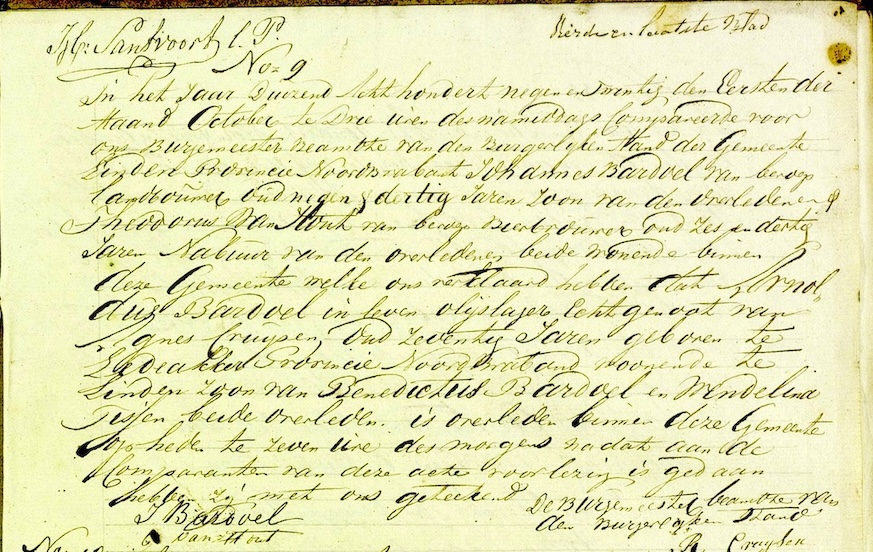 H: Santvoort l. P.
Vierde en laatste blad
No 9
In het Jaar Duizend Acht hondert negen en twintig den Eersten der
Maand October te Drie uren des namiddags Compareerde voor
ons Burgemeester Beambte van den Burgerlyken Stand der Gemeente
Linden Provincie Noordbrabant Johannes Bardoel van beroep
landbouwer oud negen & dertig Jaren Zoon van den overledenen &
Theodorus Van Hout van beroep Bierbrouwer oud Zes en dertig
Jaren Nabuur van den overledenen beide wonende binnen
deze Gemeente welke ons verklaard hebben dat Arnol
dus Bardoel in leven olijslager, Echtgenoot van
Agnes Cruijsen, Oud Zeventig Jaren geboren te
Provincie Noordbraband woonende te
Linden Zoon van Benedictus Bardoel en Wendelina
Tissen beide overleden. is overleden binnen deze Gemeente
op heden te Zeven Ure des morgens na dat aan de
Comparanten van deze acte voorlezing is gedaan
hebben Zij met ons geteekend
De Burgemeester beambte van
den Burgerlyken Stand
J Bardoel
van Hout
Cruysen